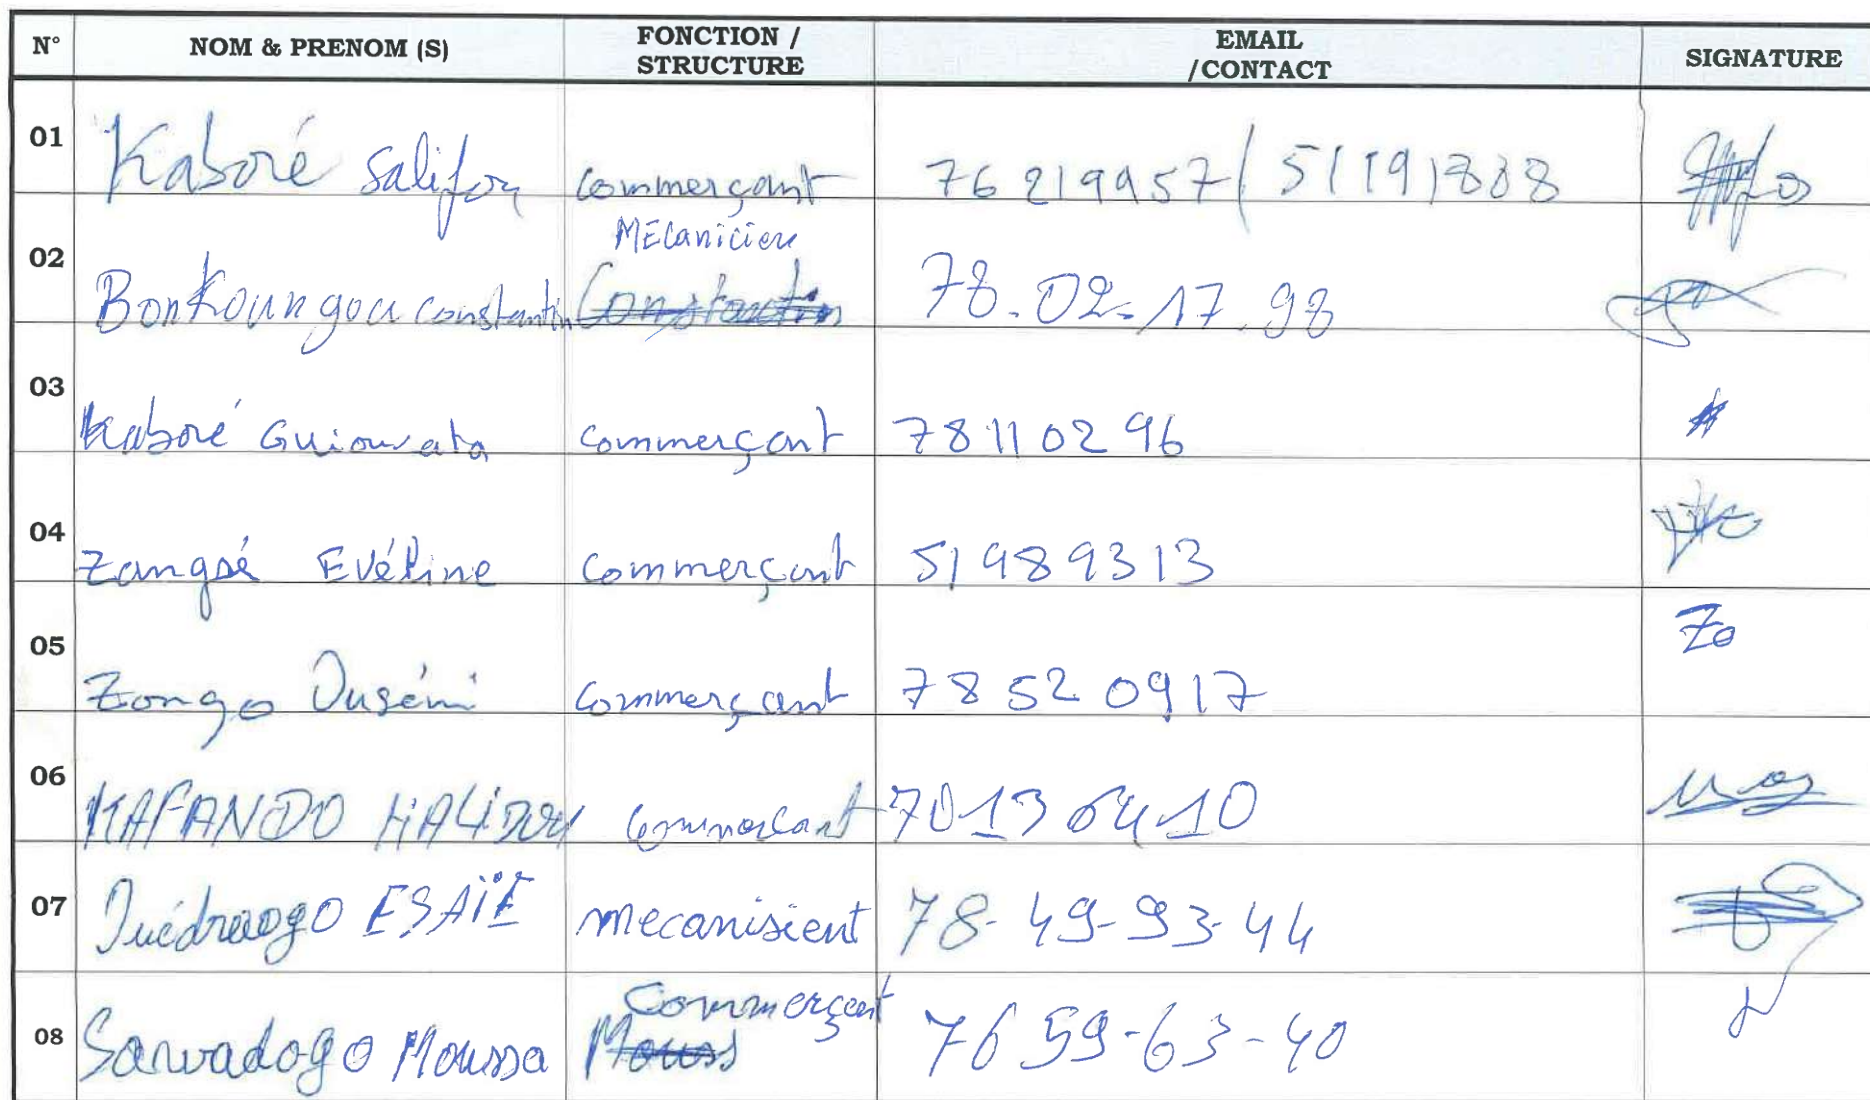 N° NOM & PRENOM (S) FONCTION / STRUCTURE EMAIL /CONTACT SIGNATURE
01 Kaboré Salifou commerçant 76219957/51191888
02 Bonkoungou constantin MECanicien 78.02.17.98
03 Kaboré Guiouvata commerçant 78110296
04 Zangré Evéline commerçant 51989313
05 Zongo Ouséni commerçant 78520917 Zo
06 KAFANDO HALIDOU commercant 70130410
07 Ouédraogo ESAÏE mecanisient 78-49-93-44
08 Sawadogo Moussa Commerçant 7659-63-40